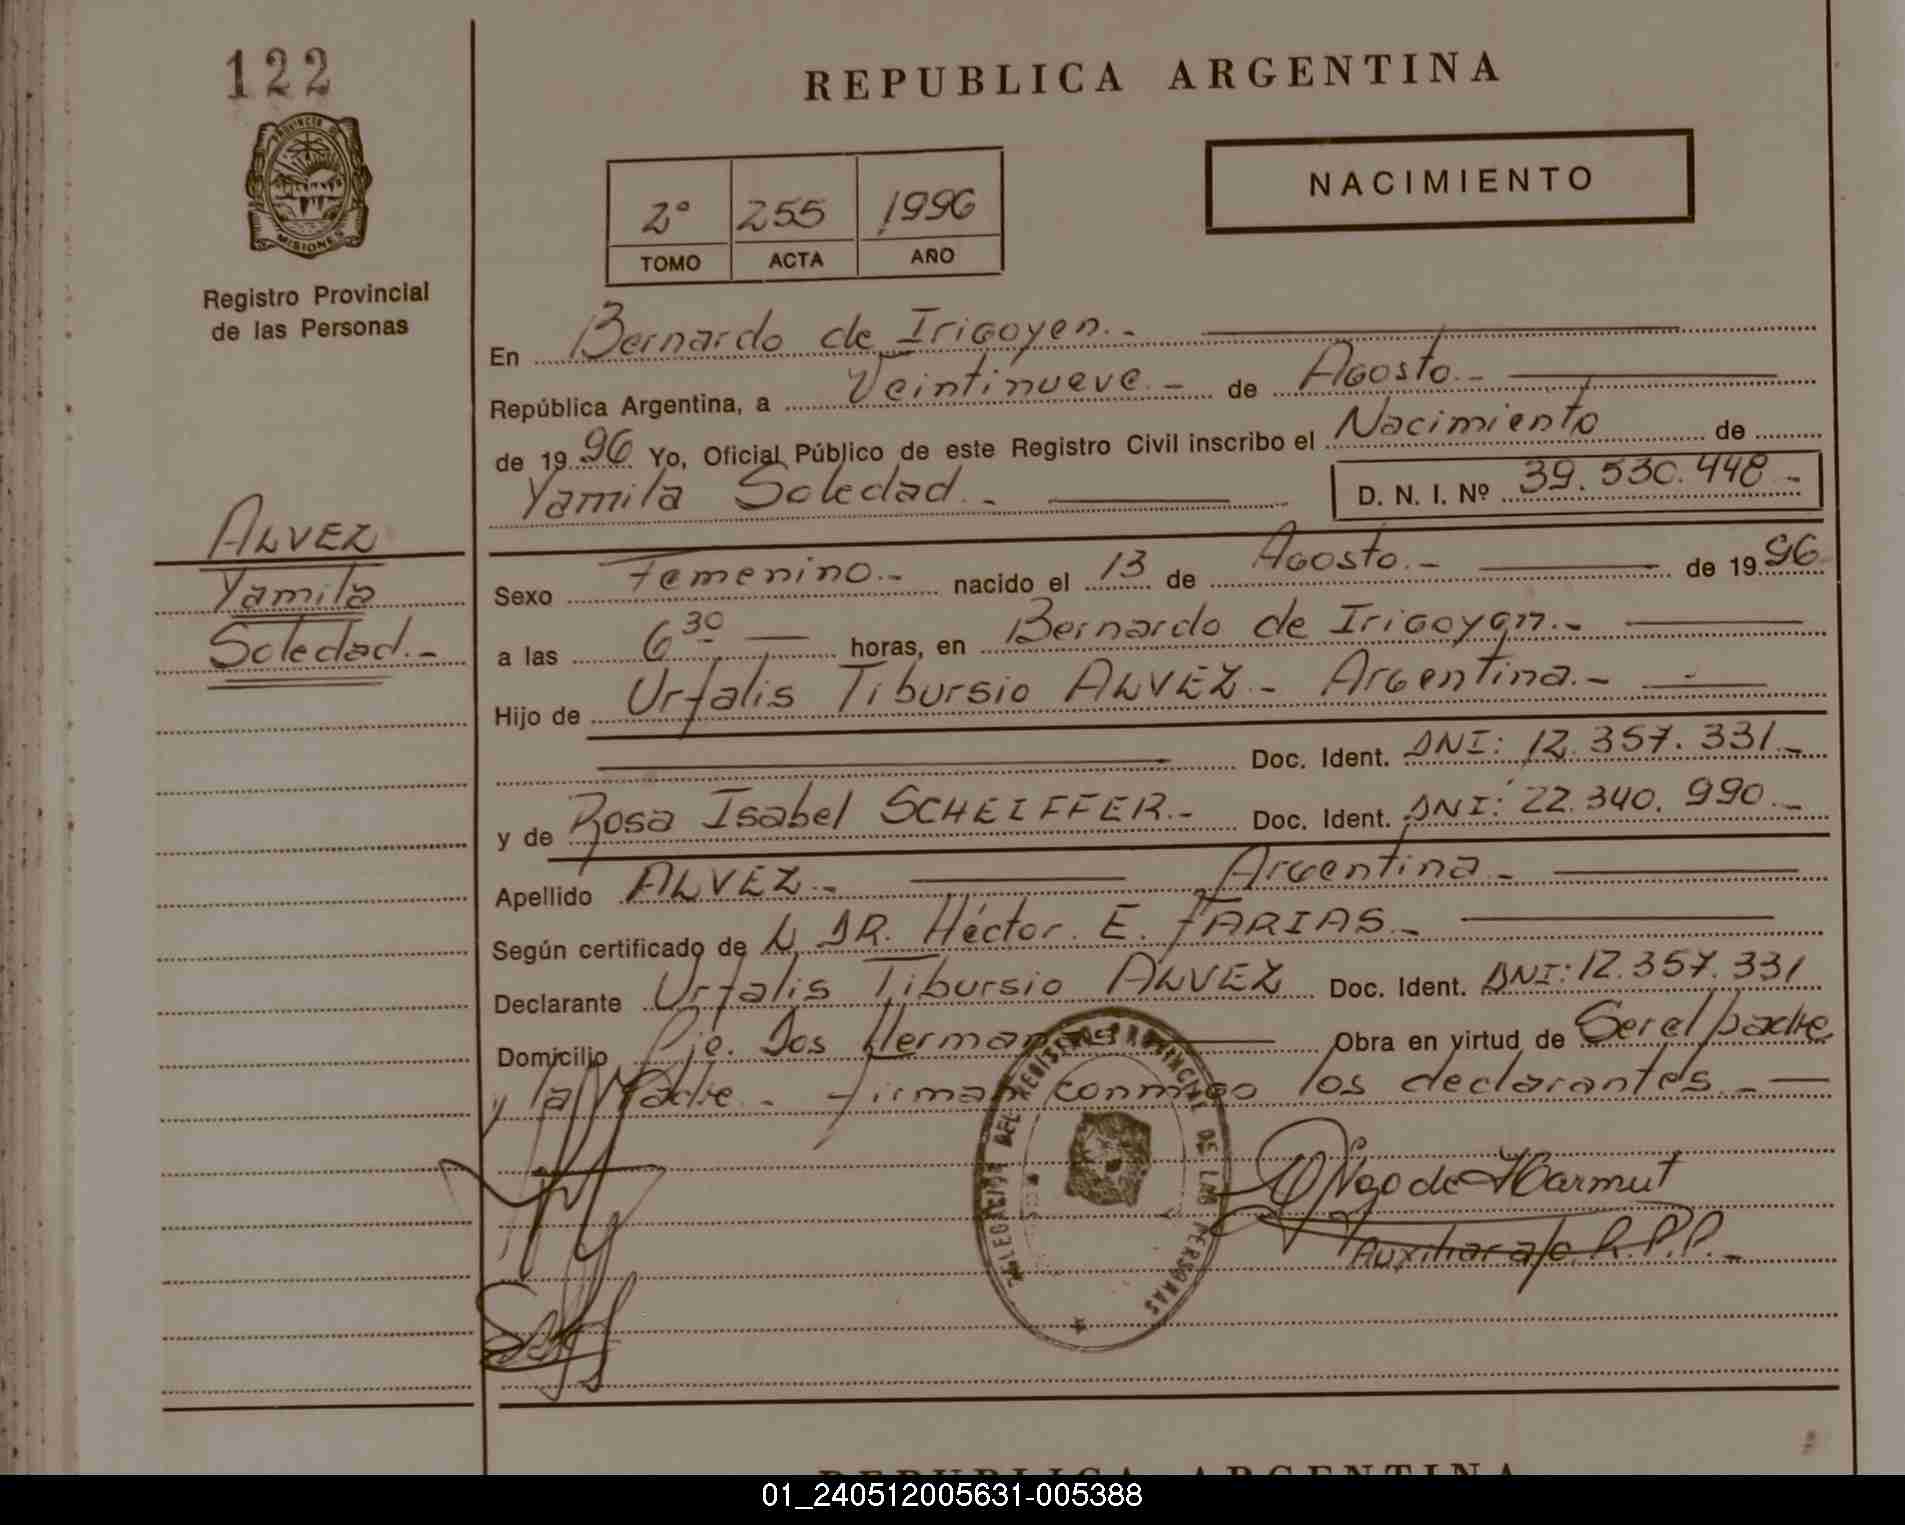 122
REPUBLICA ARGENTINA
PROVINCIA DE
MISIONES
Registro Provincial
de las Personas
2º 255 1996
TOMO ACTA AÑO
NACIMIENTO
En Bernardo de Irigoyen.-
República Argentina, a Veintinueve.- de Agosto.-
de 1996 Yo, Oficial Público de este Registro Civil inscribo el Nacimiento de
Yamila Soledad.- D. N. I. Nº 39.530.448-
ALVEZ
Yamila
Soledad.-
Sexo Femenino.- nacido el 13 de Agosto.- de 1996
a las 6 30 horas, en Bernardo de Irigoyen.-
Hijo de Urfalis Tibursio ALVEZ.- Argentina.-
Doc. Ident. DNI: 12.357.331.-
y de Rosa Isabel SCHEIFFER.- Doc. Ident. DNI: 22.340.990.-
Apellido ALVEZ.- Argentina.-
Según certificado de DR. Héctor. E. FARIAS.-
Declarante Urfalis Tibursio ALVEZ Doc. Ident. DNI: 12.357.331
Domicilio Pje. Dos Hermanas Obra en virtud de Ser el padre
y la Madre.- firman conmigo los declarantes.-
DELEGACION DEL REGISTRO PROVINCIAL DE LAS PERSONAS
de Harmut
Auxiliar a/c R.P.P.-
REPUBLICA ARGENTINA
01_240512005631-005388